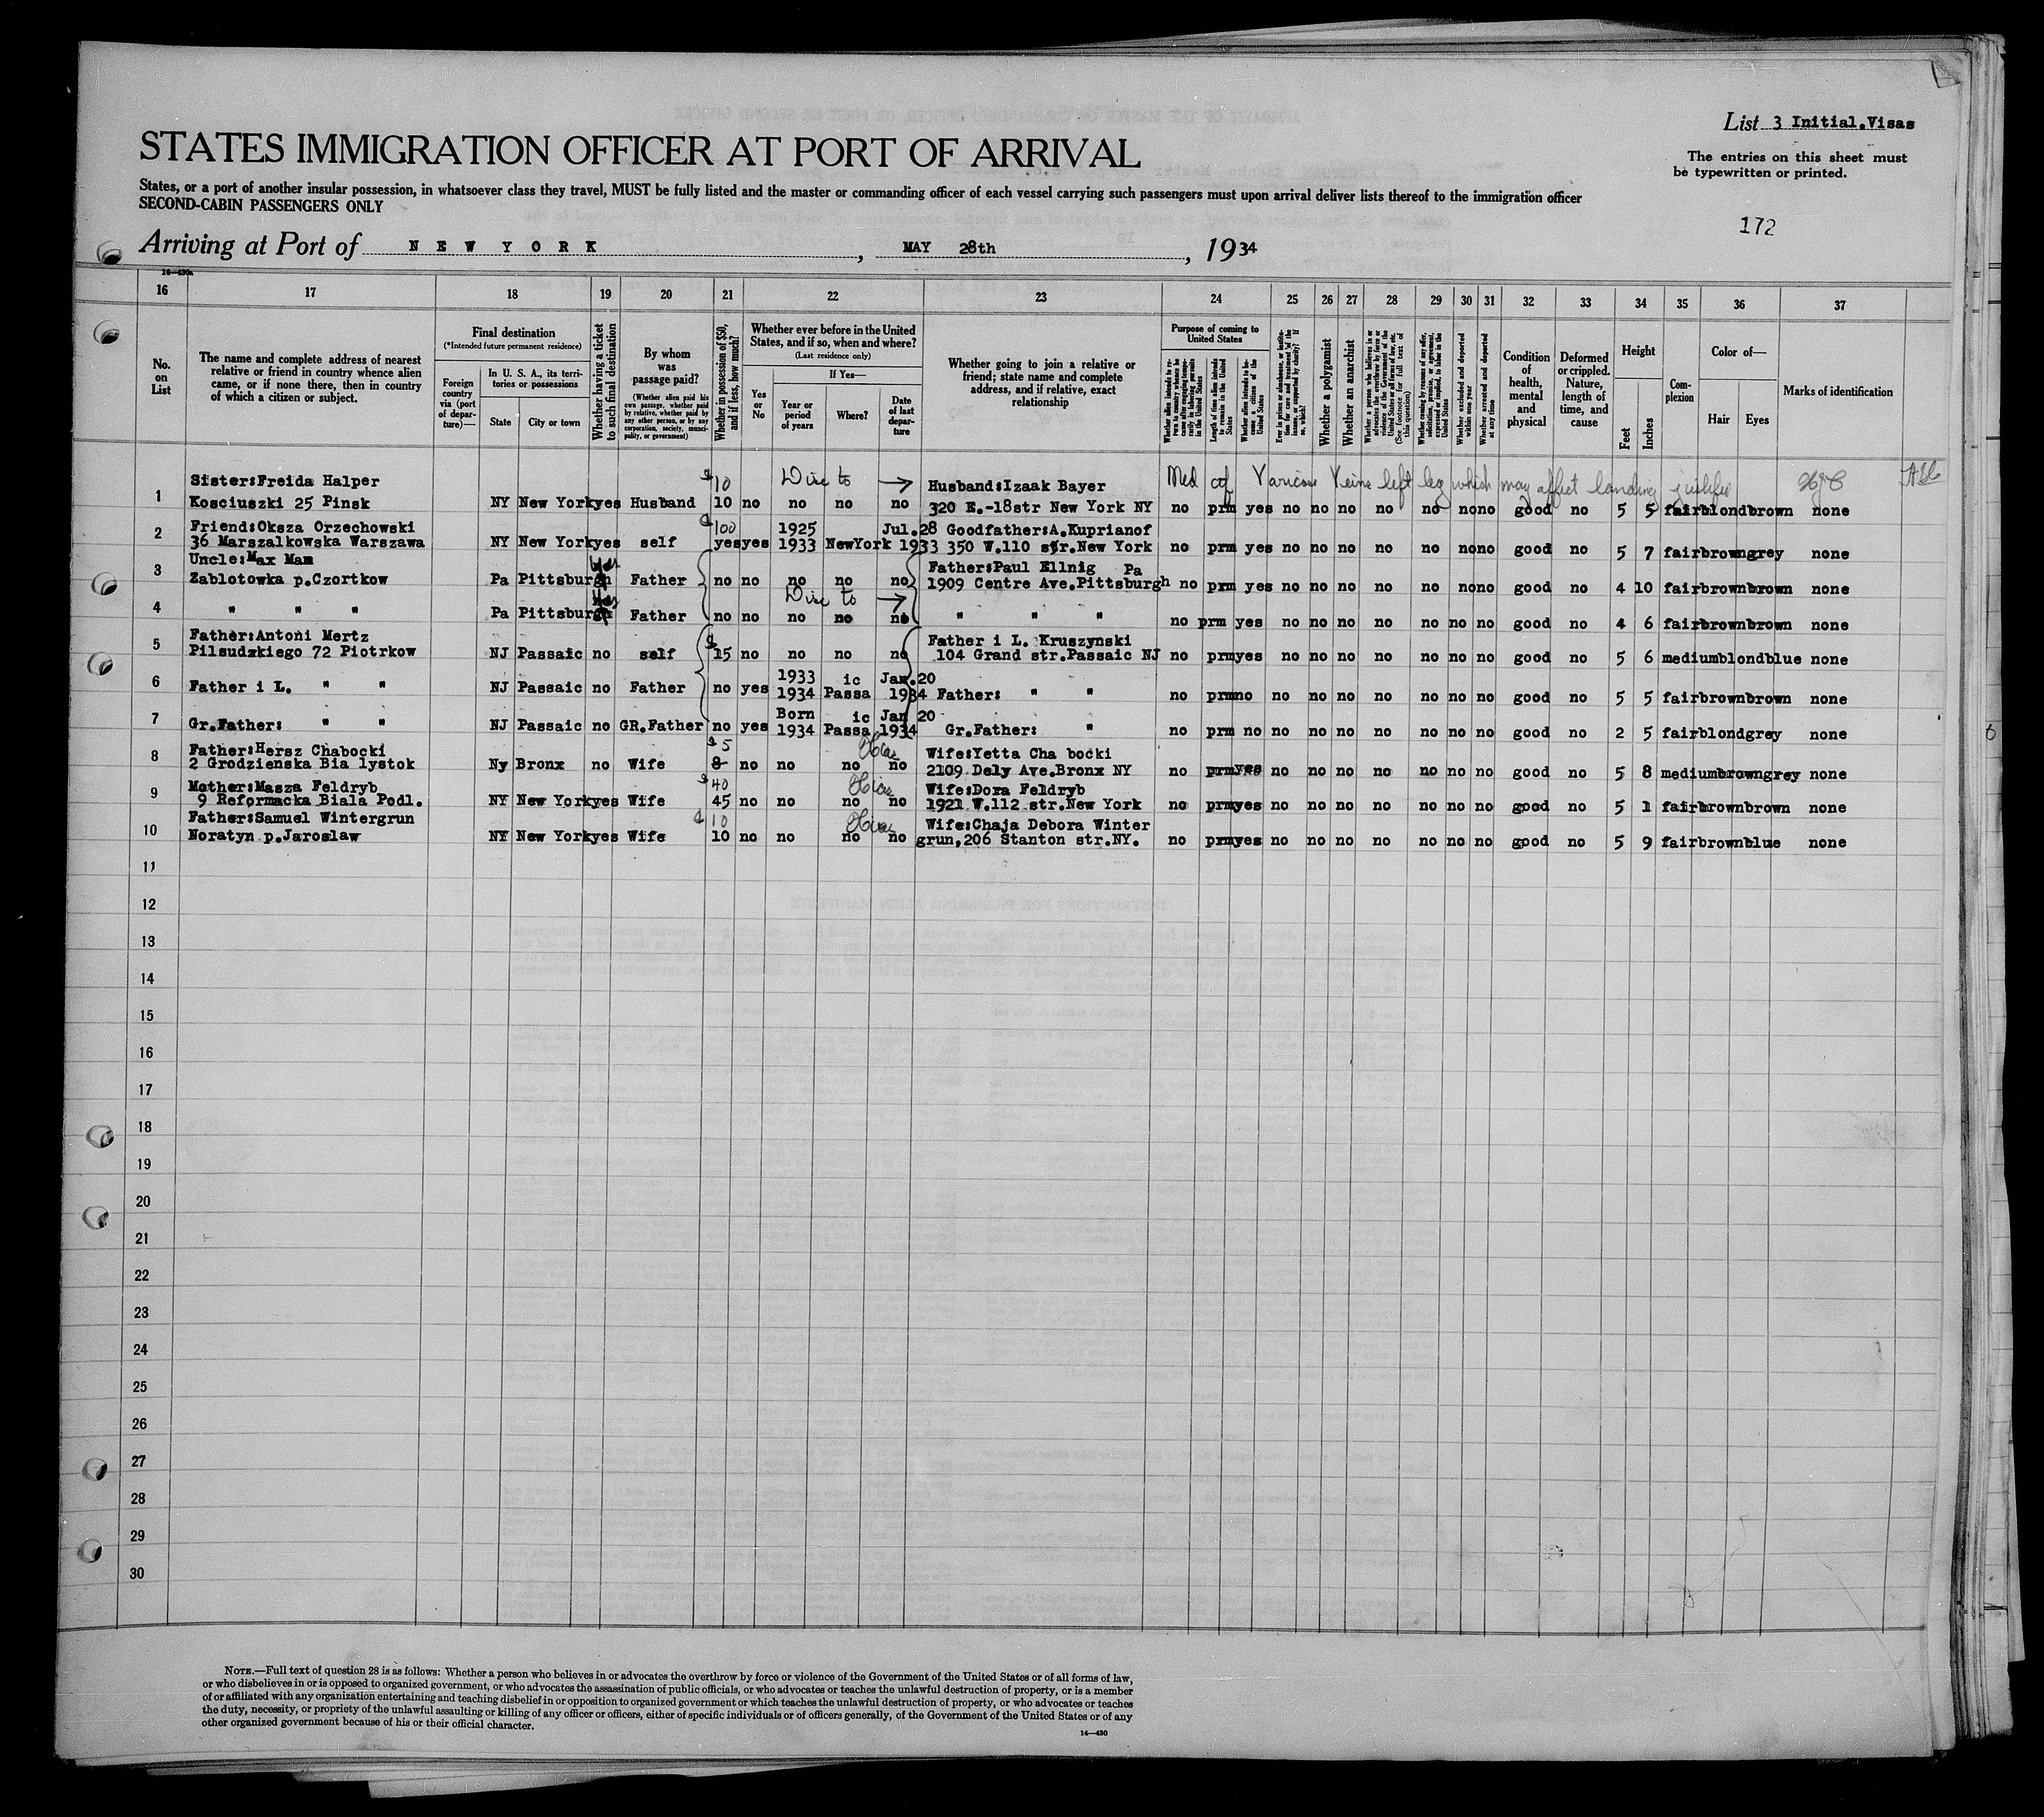 List 3 Initial.Visas
STATES IMMIGRATION OFFICER AT PORT OF ARRIVAL
The entries on this sheet must
be typewritten or printed.
States, or a port of another insular possession, in whatsoever class they travel, MUST be fully listed and the master or commanding officer of each vessel carrying such passengers must upon arrival deliver lists thereof to the immigration officer
SECOND-CABIN PASSENGERS ONLY
172
Arriving at Port of NEW YORK, MAY 28th, 1934
16 17 18 19 20 21 22 23 24 25 26 27 28 29 30 31 32 33 34 35 36 37
No. on List
The name and complete address of nearest relative or friend in country whence alien came, or if none there, then in country of which a citizen or subject.
Final destination
(*Intended future permanent residence)
Foreign country via (port of departure)—
In U. S. A., its territories or possessions
State
City or town
Whether having a ticket to such final destination
By whom was passage paid?
(Whether alien paid his own passage, whether paid by relative, whether paid by any other person, or by any corporation, society, municipality, or government)
Whether in possession of $50, and if less, how much?
Whether ever before in the United States, and if so, when and where?
(Last residence only)
Yes or No
If Yes—
Year or period of years
Where?
Date of last departure
Whether going to join a relative or friend; state name and complete address, and if relative, exact relationship
Purpose of coming to United States
Whether alien intends to return to country whence he came after engaging temporarily in laboring pursuits in the United States
Length of time alien intends to remain in the United States
Whether alien intends to become a citizen of the United States
Ever in prison or almshouse, or institution for care and treatment of the insane, or supported by charity? If so, which?
Whether a polygamist
Whether an anarchist
Whether a person who believes in or advocates the overthrow by force or violence of the Government of the United States or all forms of law, etc. (See footnote for full text of this question)
Whether coming by reasons of any offer, solicitation, promise, or agreement, expressed or implied, to labor in the United States
Whether excluded and deported within one year
Whether arrested and deported at any time
Condition of health, mental and physical
Deformed or crippled. Nature, length of time, and cause
Height
Feet
Inches
Complexion
Color of—
Hair
Eyes
Marks of identification
Sister:Freida Halper $10 Husband:Izaak Bayer Med cf Varicose Veins left leg which may affect landing
1 Kosciuszki 25 Pinsk NY New York yes Husband 10 no no no no 320 E.-18str New York NY no prm yes no no no no no no no good no 5 5 fair blond brown none
Friend:Oksza Orzechowski $100 1925 Jul.28 Goodfather:A.Kuprianof
2 36 Marszalkowska Warszawa NY New York yes self yes yes 1933 NewYork 1933 350 W.110 str.New York no prm yes no no no no no no no good no 5 7 fair brown grey none
Uncle:Max Mam Yes Father:Paul Ellnig Pa
3 Zablotowka p.Czortkow Pa Pittsburgh Father no no no no no 1909 Centre Ave.Pittsburgh no prm yes no no no no no no no good no 4 10 fair brown brown none
4 " " " Pa Pittsburgh Yes Father no no no no no " " " no prm yes no no no no no no no good no 4 6 fair brown brown none
Father:Antoni Mertz $ Father i L. Kruszynski
5 Pilsudzkiego 72 Piotrkow NJ Passaic no self 15 no no no no 104 Grand str.Passaic NJ no prm yes no no no no no no no good no 5 6 medium blond blue none
1933 ic Jan.20
6 Father i L. " " NJ Passaic no Father no yes 1934 Passa 1934 Father: " " no prm no no no no no no no no good no 5 5 fair brown brown none
Born ic Jan 20
7 Gr.Father: " " NJ Passaic no GR.Father no yes 1934 Passa 1934 Gr.Father: " no prm no no no no no no no no good no 2 5 fair blond grey none
Father:Hersz Chabocki $5 Hias Wife:Yetta Cha bocki
8 2 Grodzienska Bia lystok Ny Bronx no Wife 8 no no no no 2109 Dely Ave.Bronx NY no prm yes no no no no no no no good no 5 8 medium brown grey none
Mother:Masza Feldryb $40 Hias Wife:Dora Feldryb
9 9 Reformacka Biala Podl. NY New York yes Wife 45 no no no no 1921 W.112 str.New York no prm yes no no no no no no no good no 5 1 fair brown brown none
Father:Samuel Wintergrun $10 Hias Wife:Chaja Debora Winter
10 Noratyn p.Jaroslaw NY New York yes Wife 10 no no no no grun,206 Stanton str.NY. no prm yes no no no no no no no good no 5 9 fair brown blue none
11
12
13
14
15
16
17
18
19
20
21
22
23
24
25
26
27
28
29
30
NOTE.—Full text of question 28 is as follows: Whether a person who believes in or advocates the overthrow by force or violence of the Government of the United States or of all forms of law,
or who disbelieves in or is opposed to organized government, or who advocates the assassination of public officials, or who advocates or teaches the unlawful destruction of property, or is a member
of or affiliated with any organization entertaining and teaching disbelief in or opposition to organized government or which teaches the unlawful destruction of property, or who advocates or teaches
the duty, necessity, or propriety of the unlawful assaulting or killing of any officer or officers, either of specific individuals or of officers generally, of the Government of the United States or of any
other organized government because of his or their official character.
14—430